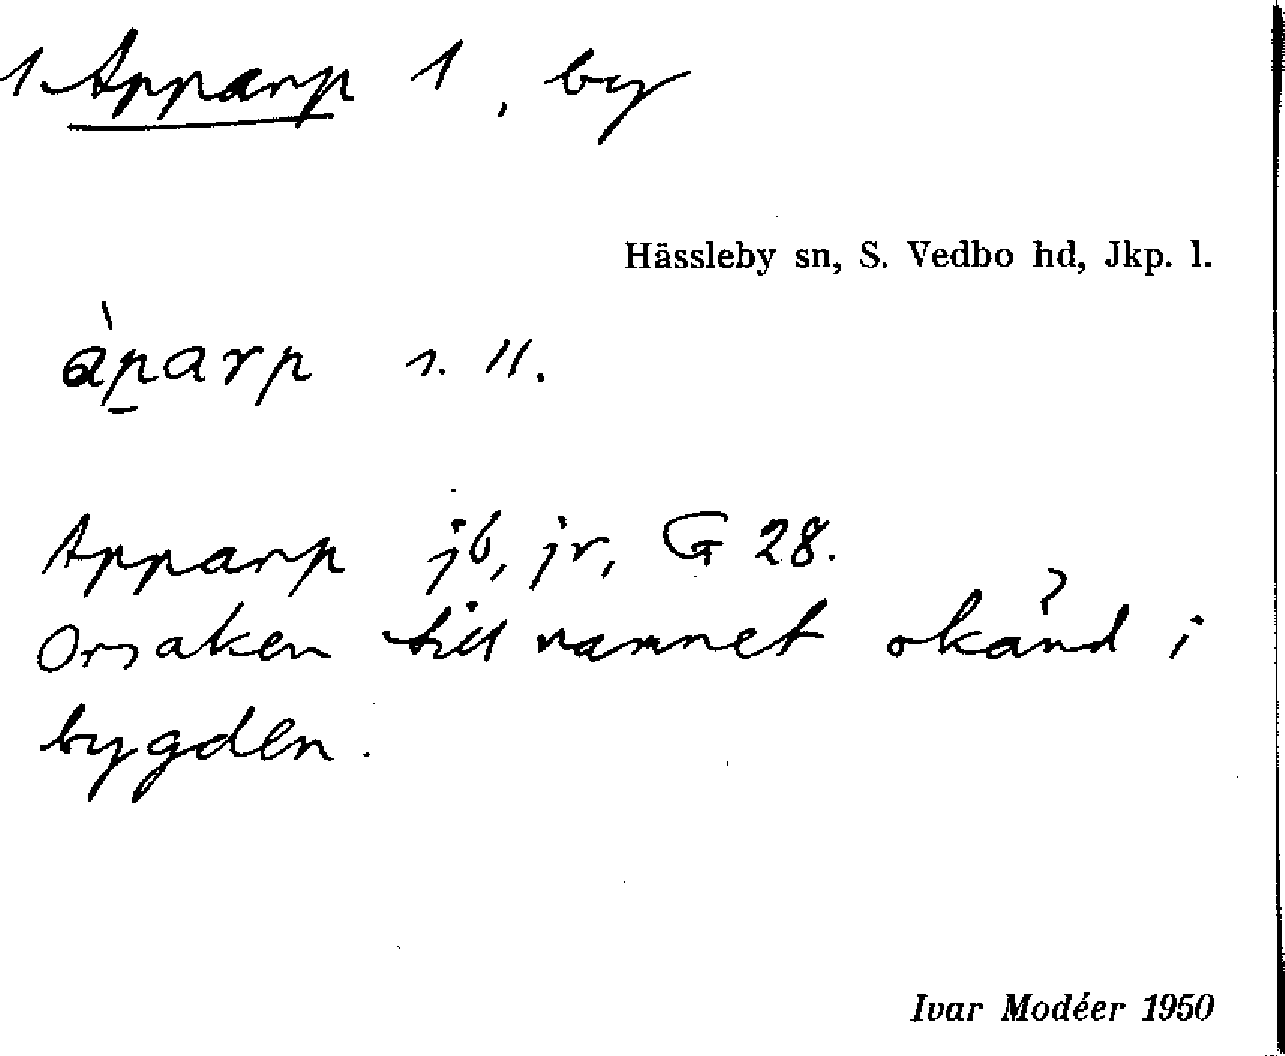 1. Apparp 1, by
Hässleby sn, S. Vedbo hd, Jkp. l.
àp̱arp 1. 11.
Apparp jb, jr, G 28.
Orsaken till namnet okänd i
bygden.
Ivar Modéer 1950